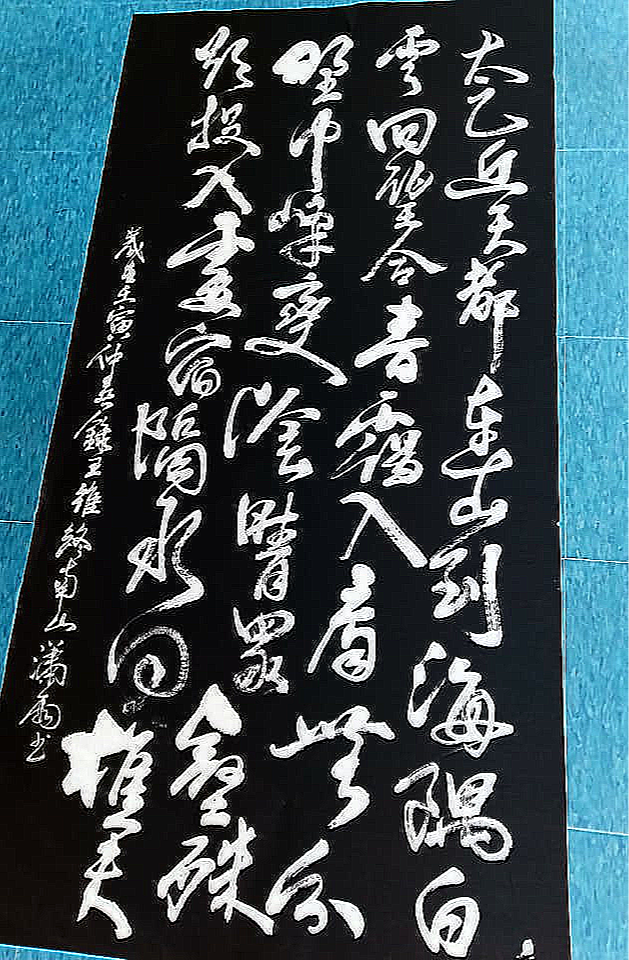 太乙近天都連山到海隅白
雲回望合青靄入看無分
野中峰變陰晴眾壑殊
欲投人處宿隔水問樵夫
歲在壬寅仲春錄王維終南山書